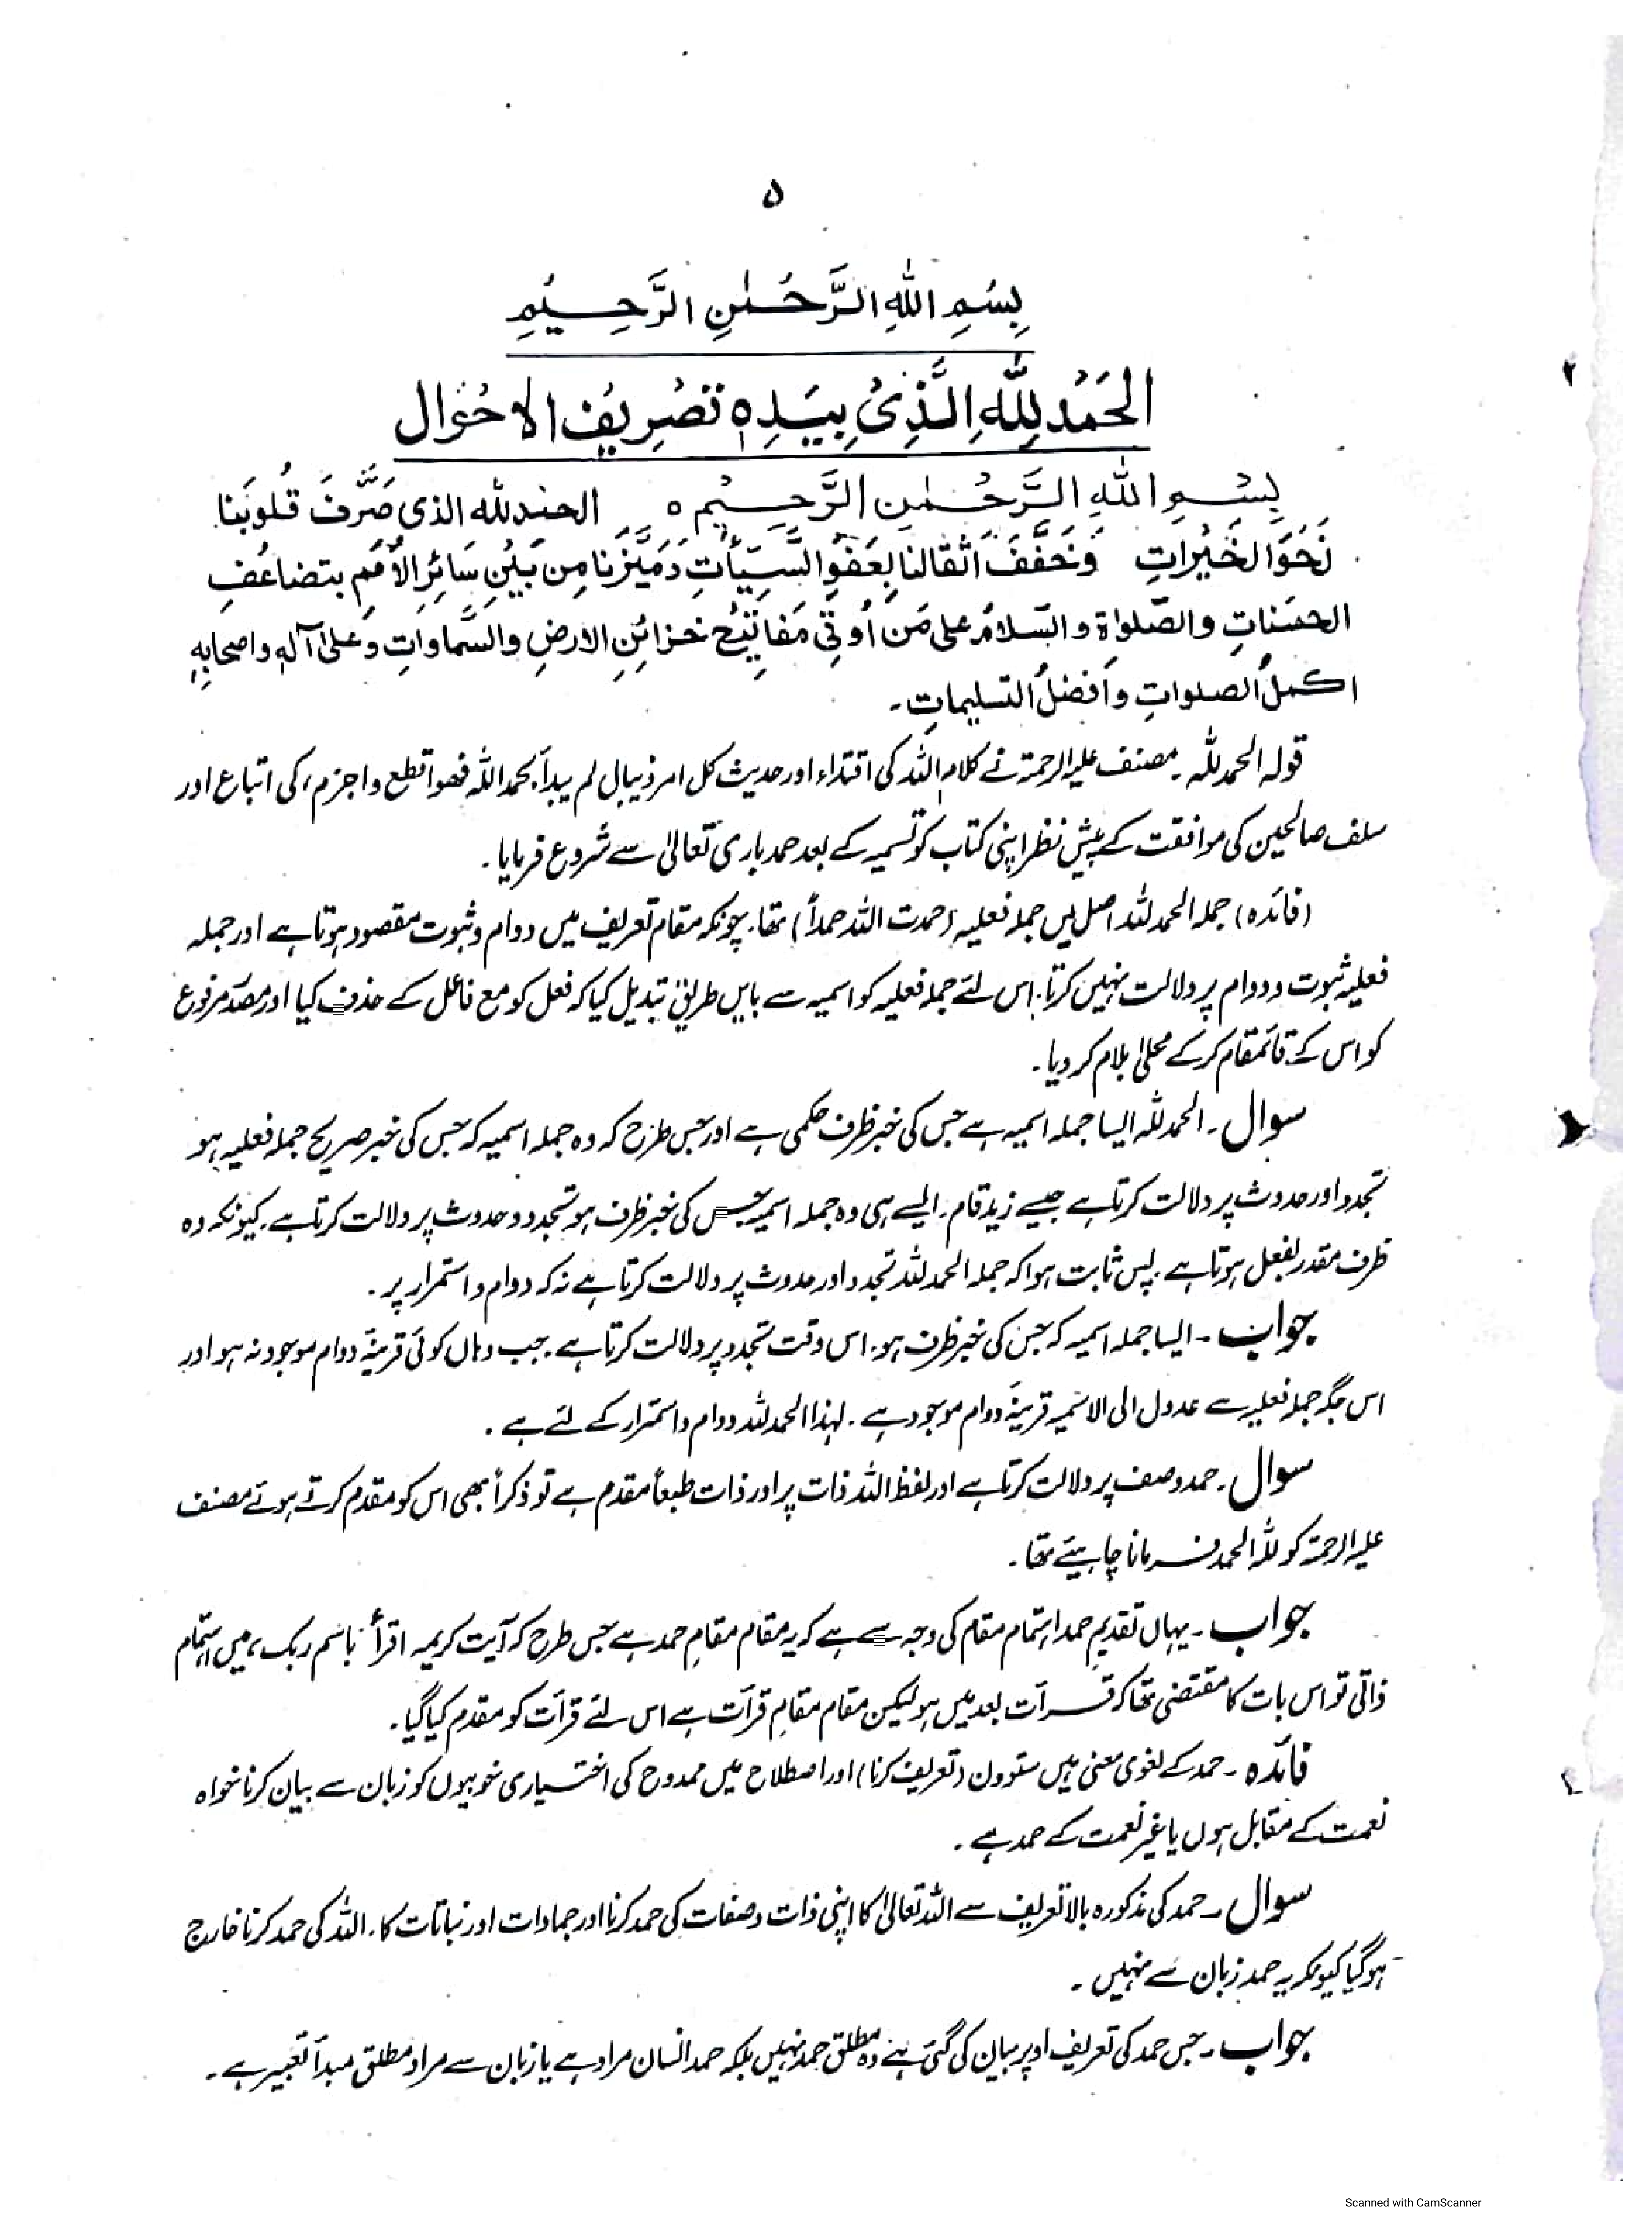 ۵
بِسْمِ اللهِ الرَّحْمٰنِ الرَّحِيْمِ
الْحَمْدُ لِلّٰهِ الَّذِىْ بِيَدِهٖ تَصْرِيْفُ الْاَحْوَال
بِسْمِ اللهِ الرَّحْمٰنِ الرَّحِيْمِ ه الحمد لله الذى صَرَّفَ قُلوبَنا
نَحْوَ الخَيْراتِ وَنَحَفَّفَ اَثقالنا بِعَفْوِ السَّيِّأٰتِ وَمَيَّزَنا مِن بَيْنِ سَائِرِ الاُمَمِ بتضاعُفِ
الحسَناتِ والصَّلوٰاة والسَّلامُ على مَن اُوتِىَ مَفَاتِيْحَ خزائنِ الارضِ والسَّماواتِ وَعلىٰ آلهٖ واصحابِهٖ
اكملُ الصلواتِ واَفضلُ التسليماتِ۔
قولہ الحمد للہ۔ مصنف علیہ الرحمۃ نے کلام اللہ کی اقتداء اور حدیث کل امر ذیبال لم یبدأ بحمد اللہ فھو اقطع واجزم، کی اتباع اور
سلف صالحین کی موافقت کے پیش نظر اپنی کتاب کو تسمیہ کے بعد حمد باری تعالیٰ سے شروع فرمایا۔
(فائدہ) جملہ الحمد للہ اصل میں جملہ فعلیہ (حمدت اللہ حمداً) تھا۔ چونکہ مقام تعریف میں دوام و ثبوت مقصود ہوتا ہے اور جملہ
فعلیہ ثبوت و دوام پر دلالت نہیں کرتا۔ اس لئے جملہ فعلیہ کو اسمیہ سے بایں طریق تبدیل کیا کہ فعل کو مع فاعل کے حذف کیا اور مصدر مرفوع
کو اس کے قائمقام کر کے محلیٰ بلام کر دیا۔
سوال۔ الحمد للہ ایسا جملہ اسمیہ ہے جس کی خبر ظرف حکمی ہے اور جس طرح کہ وہ جملہ اسمیہ کہ جس کی خبر صریح جملہ فعلیہ ہو
تجدد اور حدوث پر دلالت کرتا ہے جیسے زید قام۔ ایسے ہی وہ جملہ اسمیہ جس کی خبر ظرف ہو تجدد و حدوث پر دلالت کرتا ہے۔ کیونکہ وہ
ظرف مقدر بفعل ہوتا ہے۔ پس ثابت ہوا کہ جملہ الحمد للہ تجدد اور حدوث پر دلالت کرتا ہے نہ کہ دوام و استمرار پر۔
جواب۔ ایسا جملہ اسمیہ کہ جس کی خبر ظرف ہو۔ اس وقت تجدد پر دلالت کرتا ہے۔ جب وہاں کوئی قرینۂ دوام موجود نہ ہو اور
اس جگہ جملہ فعلیہ سے عدول الی الاسمیہ قرینۂ دوام موجود ہے۔ لہذا الحمد للہ دوام و استمرار کے لئے ہے۔
سوال۔ حمد وصف پر دلالت کرتا ہے اور لفظ اللہ ذات پر اور ذات طبعاً مقدم ہے تو ذکراً بھی اس کو مقدم کرتے ہوئے مصنف
علیہ الرحمۃ کو للہ الحمد فرمانا چاہیئے تھا۔
جواب۔ یہاں تقدیم حمد اہتمام مقام کی وجہ سے ہے کہ یہ مقام مقامِ حمد ہے جس طرح کہ آیت کریمہ اقرأ باسم ربک، میں اہتمام
ذاتی تو اس بات کا مقتضی تھا کہ قرآت بعد میں ہو لیکن مقام مقامِ قرآت ہے اس لئے قرآت کو مقدم کیا گیا۔
فائدہ۔ حمد کے لغوی معنی ہیں ستودن (تعریف کرنا) اور اصطلاح میں ممدوح کی اختیاری خوبیوں کو زبان سے بیان کرنا خواہ
نعمت کے مقابل ہوں یا غیر نعمت کے حمد ہے۔
سوال۔ حمد کی مذکورہ بالا تعریف سے اللہ تعالیٰ کا اپنی ذات و صفات کی حمد کرنا اور جمادات اور نباتات کا۔ اللہ کی حمد کرنا خارج
ہو گیا کیونکہ یہ حمد زبان سے نہیں۔
جواب۔ جس حمد کی تعریف اوپر بیان کی گئی ہے وہ مطلق حمد نہیں بلکہ حمد انسان مراد ہے یا زبان سے مراد مطلق مبدأ تعبیر ہے۔
Scanned with CamScanner